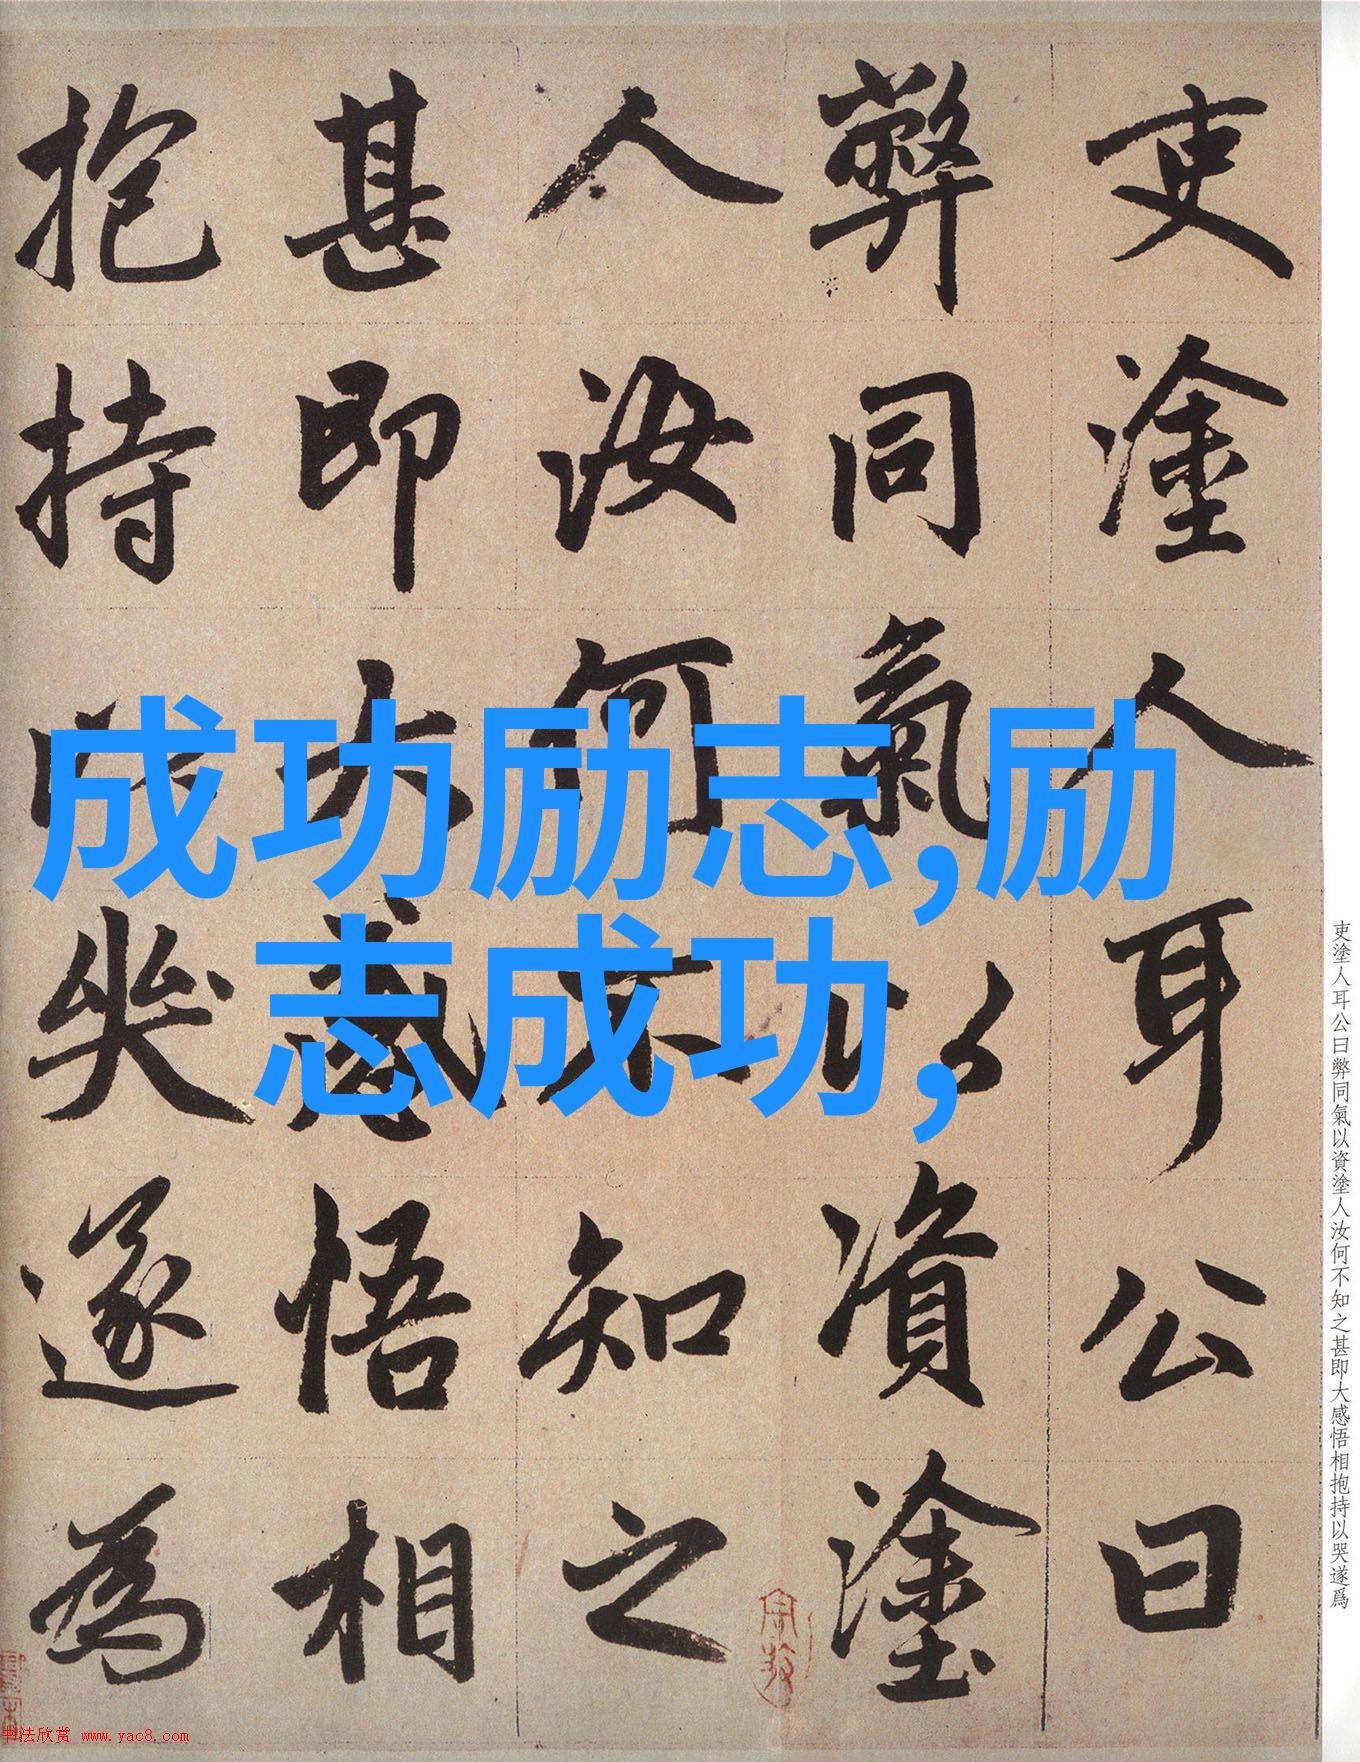 成功励志,励
志成功,
吏塗人耳公曰
弊同氣以資塗
人汝何不知之
甚即大感悟相
抱持以哭遂為
吏塗人耳公曰弊同氣以資塗人汝何不知之甚即大感悟相抱持以哭遂爲
书法欣赏 www.yac8.com